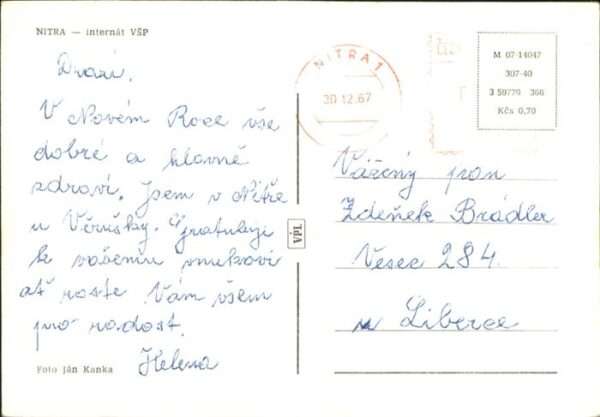 NITRA — internát VŠP
Drazí.
V Novém Roce vše
dobré a hlavně
zdraví. Jsem v Nitře
u Věrušky. Gratuluji
k vašemu vnukovi
ať roste Vám všem
pro radost.
Helena
Foto Ján Kanka
VPL
NITRA 1
30.12.67
M 07-14047
307-40
3 59779 366
Kčs 0,70
Vážený pan
Zdeněk Brádler
Vesec 284
u Liberce